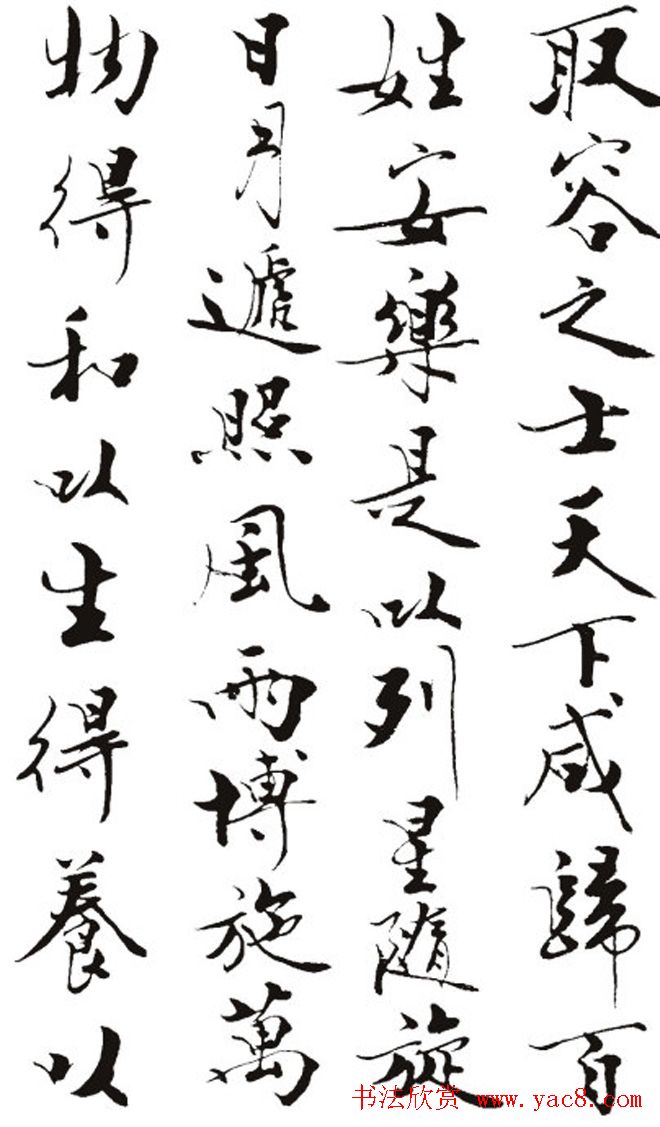 取容之士天下咸歸百
姓安樂是以列星隨旋
日月遞照風雨博施萬
物得和以生得養以
书法欣赏 www.yac8.com